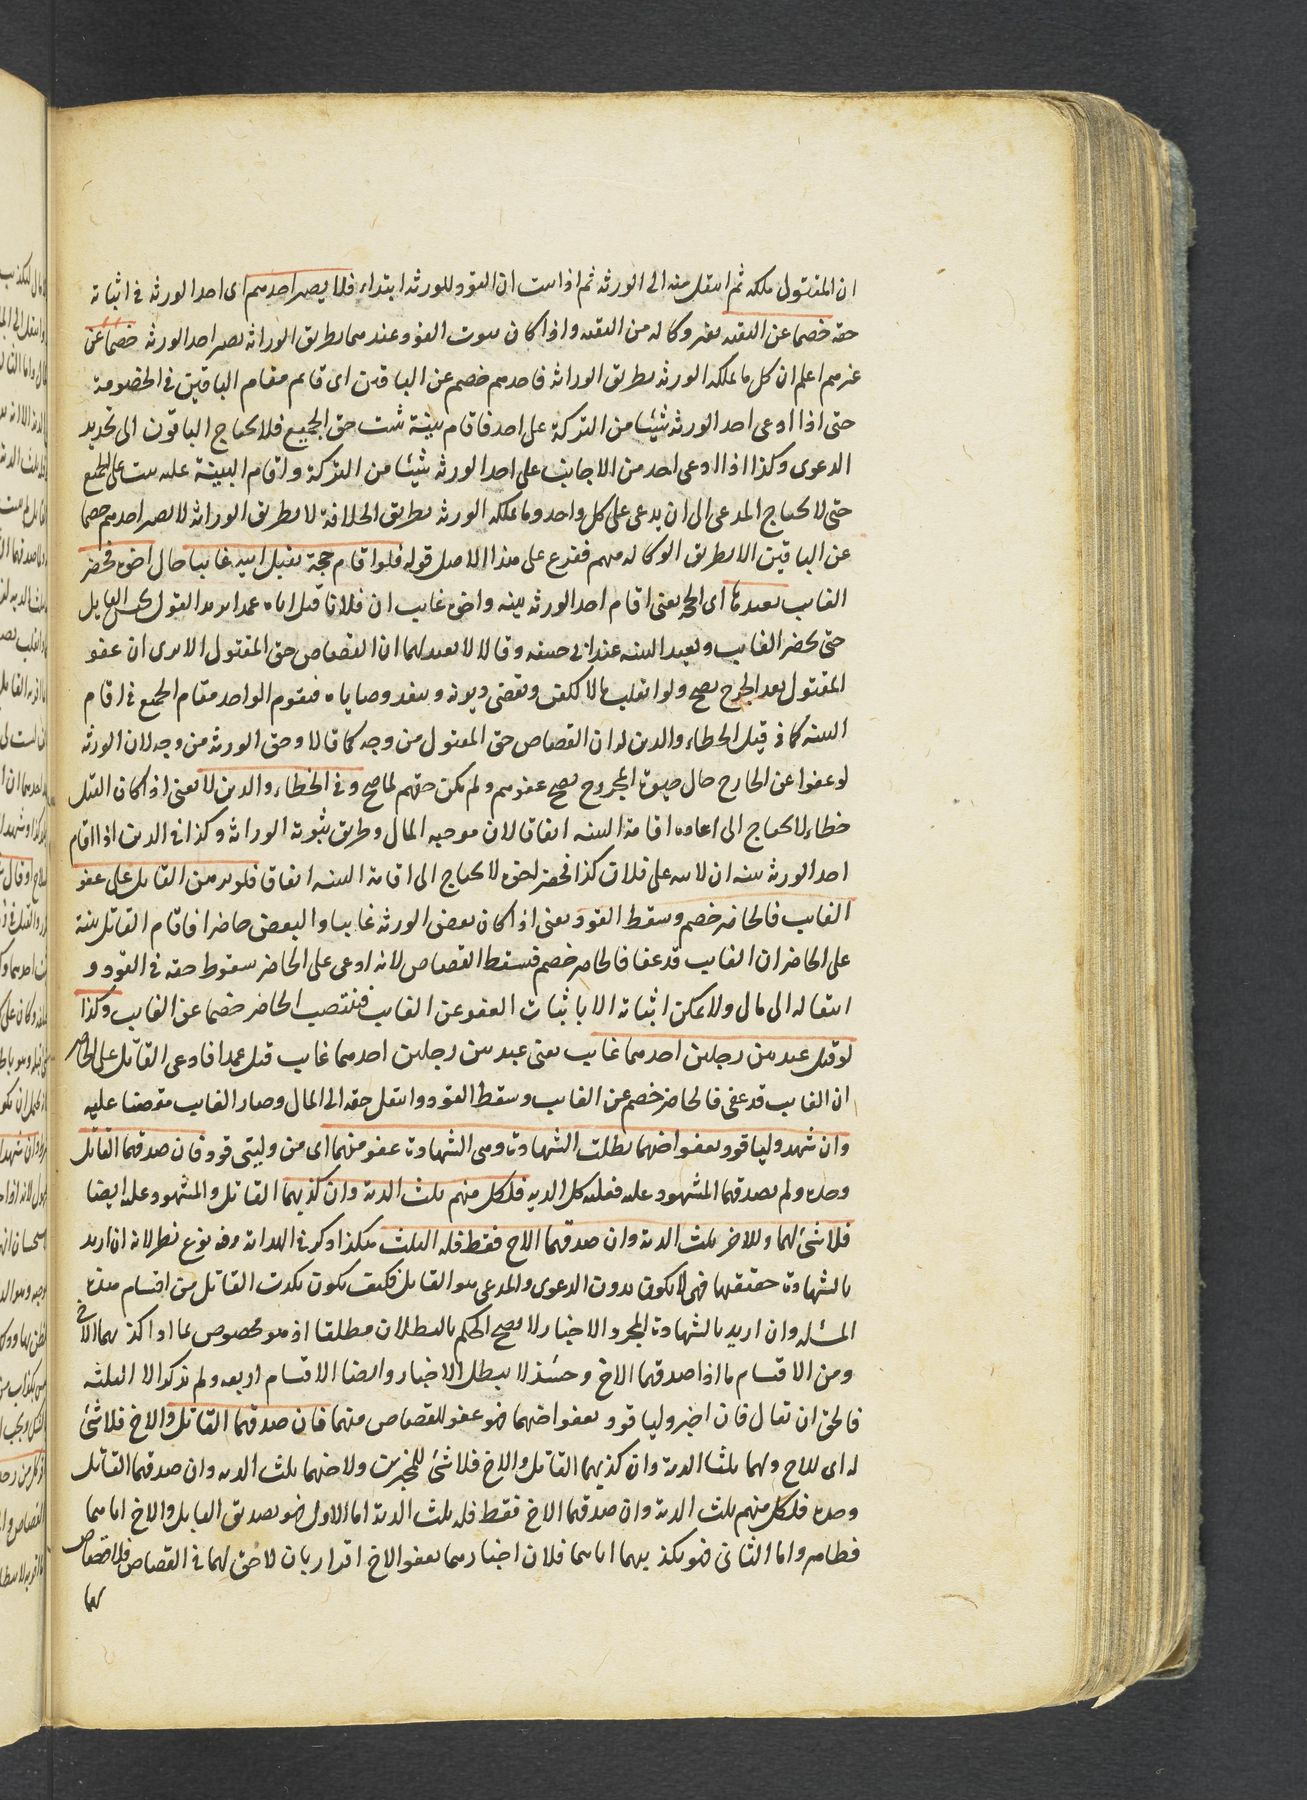 ان المقتول ملكه ثم انتقل منه الى الورثة ثم اذا ثبت ان القود للورثة ابتداء فلا يصير احدهم اى احد الورثة فى اثبات
حقه خصما عن البقية بغير وكالة من البقية واذا كان ثبوت القود عندهما بطريق الوراثة يصير احد الورثة خصما عن
غيرهم اعلم ان كل ما يملكه الورثة بطريق الوراثة فاحدهم خصم عن الباقين اى قايم مقام الباقين فى الخصومة
حتى اذا ادعى احد الورثة شيئا من التركة على احد فاقام بينة ثبت حق الجميع فلا يحتاج الباقون الى تجديد
الدعوى وكذا اذا ادعى احد من الاجانب على احد الورثة شيئا من التركة واقام البينة عليه يثبت على الجميع
حتى لا يحتاج المدعى الى ان يدعى على كل واحد وما يملكه الورثة بطريق الخلافة لا بطريق الوراثة لا يصير احدهم خصما
عن الباقين الا بطريق الوكالة منهم ففرع على هذا الاصل قوله فلو اقام حجة بقتل ابيه غايبا حال اخوه فحضر
الغايب يعيدها اى الحجة يعنى اقام احد الورثة بينة واخوه غايب ان فلانا قتل اباه عمدا يريد القود يحبس القايل
حتى يحضر الغايب ويعيد البينة عند ابى حنيفة وقالا لا يعيد لهما ان القصاص حق المقتول الا يرى ان عفو
المقتول بعد الجرح يصح ولو انقلب مالا يكفن ويقضى ديونه وينفذ وصاياه فيقوم الواحد مقام الجميع فى اقامة
البينة كما فى قتل الخطاء والدين له ان القصاص حق المقتول من وجه كما قالا وحق الورثة من وجه لان الورثة
لو عفوا عن الجارح حال حيوة المجروح يصح عفوهم ولو لم يكن حقهم لما صح وفى الخطاء والدين لا يعنى اذا كان القتل
خطاء لا يحتاج الى اعادة اقامة البينة اتفاقا لان موجبه المال وطريق ثبوته الوراثة وكذا فى الدين اذا اقام
احد الورثة بينة ان لابيه على فلان كذا فحضر اخوه لا يحتاج الى اقامة البينة اتفاقا فلو برهن القاتل على عفو
الغايب فالحاضر خصم وسقط القود يعنى اذا كان بعض الورثة غايبا والبعض حاضرا فاقام القاتل بينة
على الحاضر ان الغايب قد عفا فالحاضر خصم فسقط القصاص لانه ادعى على الحاضر سقوط حقه فى القود و
انتقاله الى مال ولا يمكن اثباته الا باثبات العفو عن الغايب فينتصب الحاضر خصما عن الغايب وكذا
لو قتل عبد بين رجلين احدهما غايب يعنى عبد بين رجلين احدهما غايب قتل عمدا فادعى القاتل على الحاضر
ان الغايب قد عفى فالحاضر خصم عن الغايب وسقط القود وانتقل حقه الى المال وصار الغايب مقضيا عليه
وان شهد وليا قود بعفو اخيهما بطلت الشهادة وهى الشهادة عفو منهما اى من وليى قود فان صدقهما القاتل
وحده ولم يصدقهما المشهود عليه فعليه كل الدية فلكل منهم ثلث الدية وان كذبهما القاتل والمشهود عليه ايضا
فلا شئ لهما وللاخر ثلث الدية وان صدقهما الاخ فقط فله الثلث هكذا ذكر فى الهداية وفيه نوع نظر لانه ان اريد
بالشهادة حقيقتها فهى لا يكون بدون الدعوى والمدعى هو القاتل فكيف يكون تكذيب القاتل من اقسام هذه
المسئلة وان اريد بالشهادة المجرد الاخبار لا يصح الحكم بالبطلان مطلقا اذ هو مخصوص بما اذا كذبهما الاخ
ومن الاقسام ما اذا صدقهما الاخ وحينئذ لا يبطل الاخبار وايضا الاقسام اربعة ولم يذكر الا الثلثة
فالحق ان يقال فان اخبر وليا قود بعفو اخيهما فهو عفو للقصاص منهما فان صدقهما القاتل والاخ فلا شئ
له اى للاخ ولهما ثلثا الدية وان كذبهما القاتل والاخ فلا شئ للمخبرين ولاخيهما ثلث الدية وان صدقهما القاتل
وحده فلكل منهم ثلث الدية وان صدقهما الاخ فقط فله ثلث الدية اما الاول فهو تصديق القاتل والاخ اياهما
فظاهر واما الثانى فهو تكذيبهما اياهما فلان اخبارهما بعفو الاخ اقرار بان لا حق لهما فى القصاص فلا قصاص
لهما